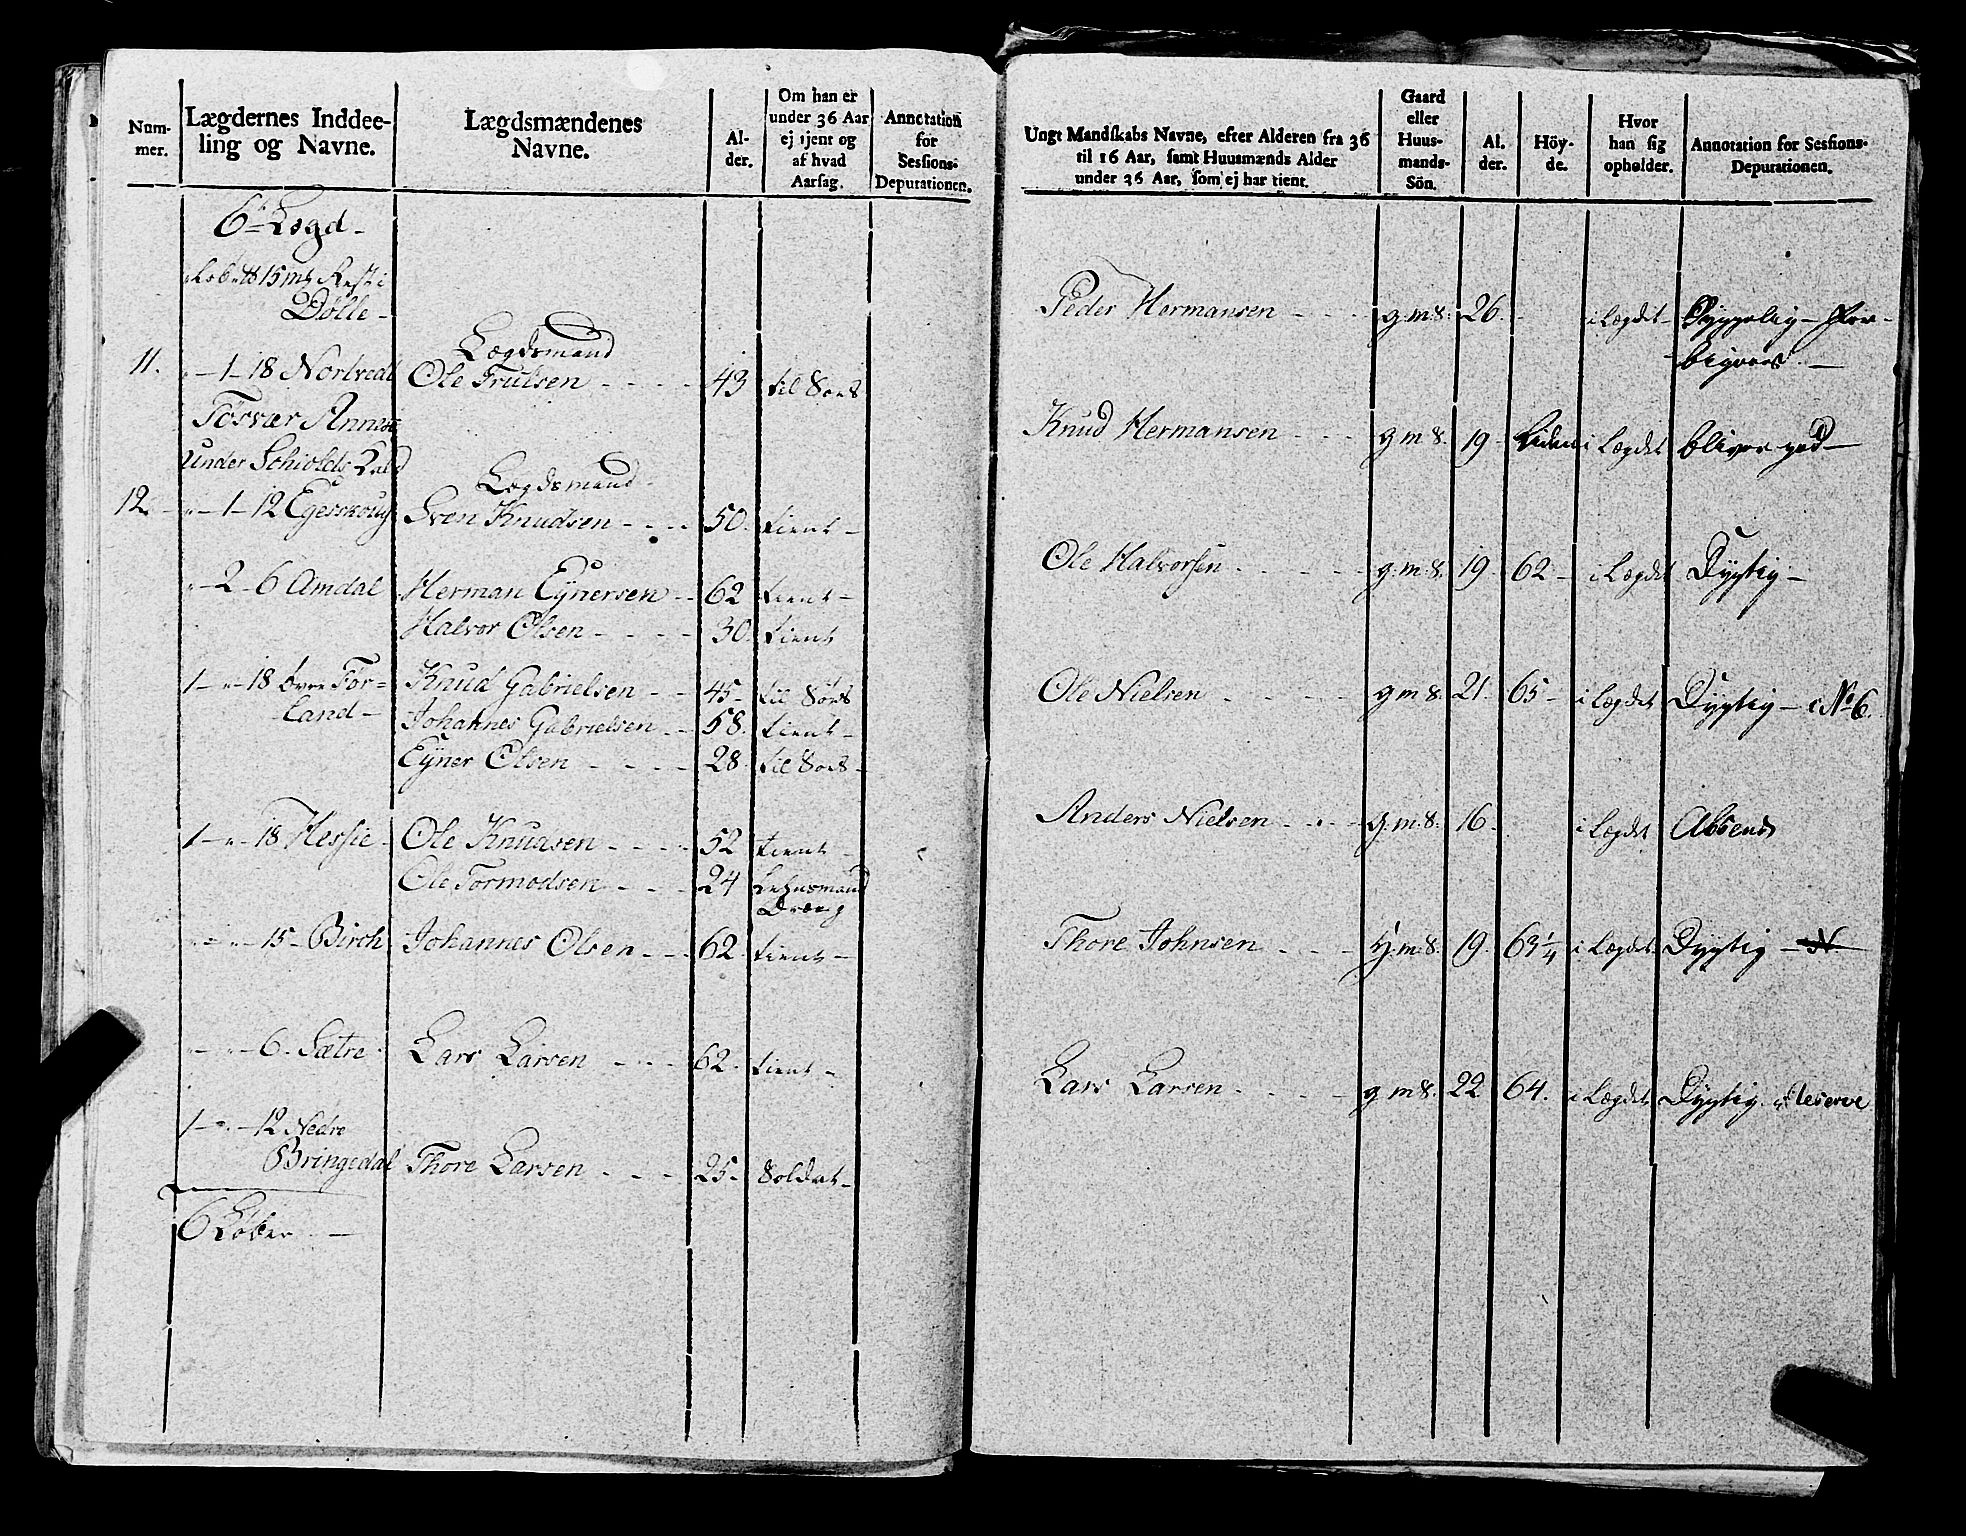 Num-
mer.
Lægdernes Inddee-
ling og Navne.
Lægdsmændenes
Navne.
Al-
der.
Om han er
under 36 Aar
ej tjent og
af hvad
Aarsag.
Annotation
for
Sessions-
Deputationen.
6te Lægd
Løb 15 Mk Rest i
Dølle
Lægdsmand
11. 1 18 Nortvedt Ole Trulsen 43 til Søes
Tosvær Annex
under Schiolds Kald
Lægdsmand
12 1 12 Egesskoug Sven Knudsen 50. tient
2 6 Amdal Herman Eynersen 62 tient
Halvor Olsen 30. tient
1 18 Over For= Knud Gabrielsen 45 til Søes
land Johannes Gabrielsen 58. tient
Eyner Olsen 28. til Søes
1 18 Hessie Ole Knudsen 52 tient
Ole Tormodsen 24 Lehnsmand
Dreng
15 Birch Johannes Olsen 62. tient
6. Sætre Lars Larsen 62. tient
1 12 Nedre
Bringedal Thore Larsen 25 Soldat
6 Løber
Ungt Mandskabs Navne, efter Alderen fra 36
til 16 Aar, samt Huusmænds Alder
under 36 Aar, som ej har tient.
Gaard
eller
Huus-
mands-
Sön.
Al.
der.
Höy-
de.
Hvor
han sig
opholder.
Annotation for Sessions-
Deputationen.
Peder Hermansen g.m.s. 26 i Lægdet
Knud Hermansen g m s. 19 Liden i Lægdet bliver ved
Ole Halvorsen g.m.s. 19 62 i Lægdet Dygtig
Ole Nielsen g m s. 21. 65 i Lægdet Dygtig i No 6.
Anders Nielsen g.m.s. 16 i Lægdet Absend
Thore Johnsen H.m.s. 19. 63 1/4 i Lægdet Dygtig
Lars Larsen g m s. 22 64. i Lægdet Dygtig Reserve